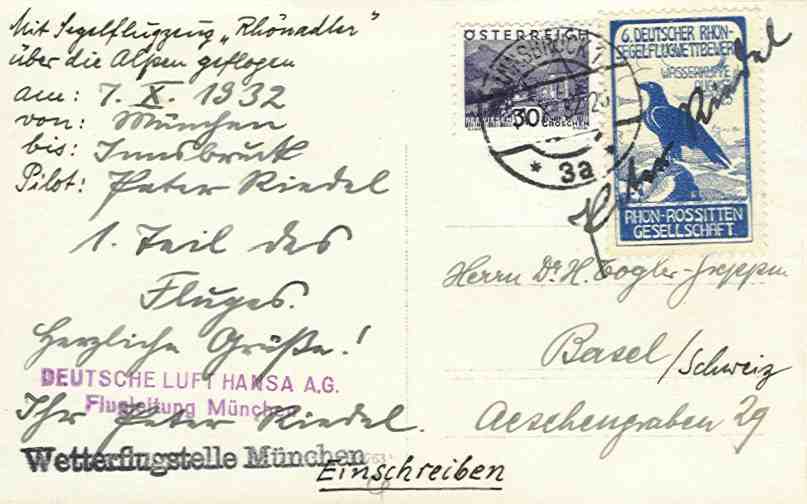 Mit Segelflugzeug „Rhönadler"
über die Alpen geflogen
am: 7. X. 1932
von: München
bis: Innsbruck
Pilot: Peter Riedel
1. Teil des
Fluges.
Herzliche Grüße!
DEUTSCHE LUFT HANSA A.G.
Flugleitung München
Ihr Peter Riedel.
Wetterflugstelle München
Einschreiben
ÖSTERREICH
30
GROSCHEN
INNSBRUCK 1
* 3a *
6. DEUTSCHER RHÖN-
SEGELFLUGWETTBEWERB
WASSERKUPPE
RHÖN-ROSSITTEN
GESELLSCHAFT
Peter Riedel
Herrn Dr. H.
Basel/Schweiz
Aeschengraben 29